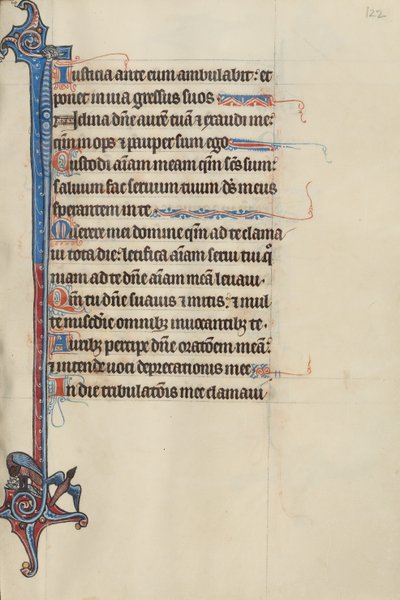 122
Iusticia ante eum ambulabit: et
ponet in uia gressus suos
Inclina dñe aurẽ tuã ⁊ exaudi me:
qm̃ inops ⁊ pauper sum ego
Custodi aĩam meam qm̃ sc̃s sum:
saluum fac seruum tuum ds̃ meus
sperantem in te
Miserere mei domine qm̃ ad te clama
ui tota die: letifica aĩam serui tui qͦ
niam ad te dñe aĩam meã leuaui.
Qm̃ tu dñe suauis ⁊ mitis: ⁊ mul
te mis̃edie omnibꝫ inuocantibꝫ te.
Auribꝫ percipe dñe orat̃oem meã:
⁊ intende uoci deprecationis mee
In die tribulat̃ois mee clamaui